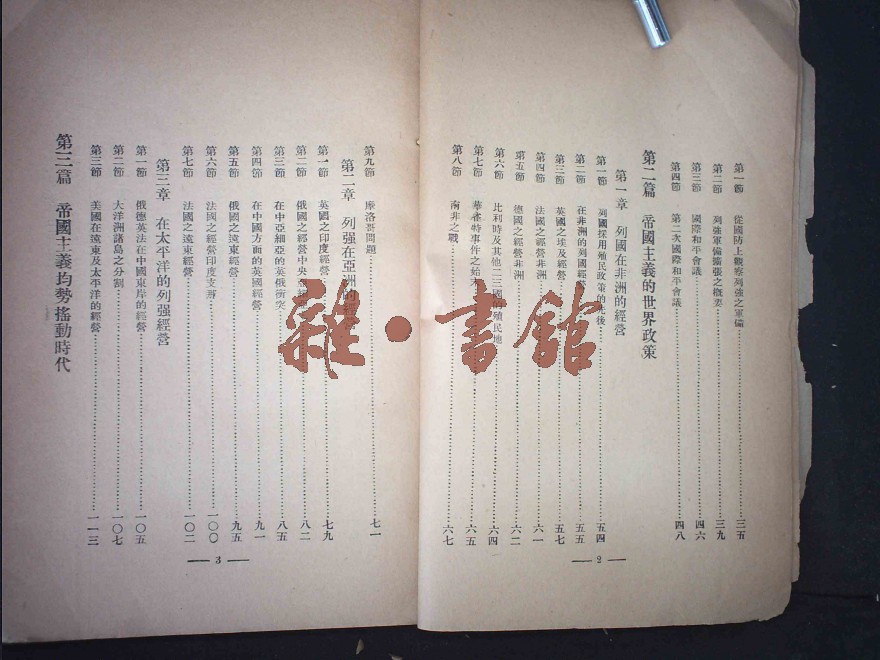 第一節　從國防上觀察列强之軍備…………三五
第二節　列强軍備擴張之概要…………三九
第三節　國際和平會議…………四六
第四節　第二次國際和平會議…………四八
第二篇　帝國主義的世界政策
第一章　列國在非洲的經營
第一節　列國採用殖民政策的先後…………五四
第二節　在非洲的列國經營…………五五
第三節　英國之埃及經營…………五七
第四節　法國之經營非洲…………六一
第五節　德國之經營非洲…………六二
第六節　比利時及其他二三國的殖民地…………六四
第七節　華雀特事件之始末…………六五
第八節　南非之戰…………六七
— 2 —
第九節　摩洛哥問題…………七一
第二章　列强在亞洲的經營
第一節　英國之印度經營…………七九
第二節　俄國之經營中央亞細…………八二
第三節　在中亞細亞的英俄衝突…………八五
第四節　在中國方面的英國經營…………九一
第五節　俄國之遠東經營…………九五
第六節　法國之經營印度支那…………一〇〇
第七節　法國之遠東經營…………一〇二
第三章　在太平洋的列强經營
第一節　俄德英法在中國東岸的經營…………一〇五
第二節　大洋洲諸島之分割…………一〇七
第三節　美國在遠東及太平洋的經營…………一一三
第三篇　帝國主義均勢搖動時代
— 3 —
雜·書館